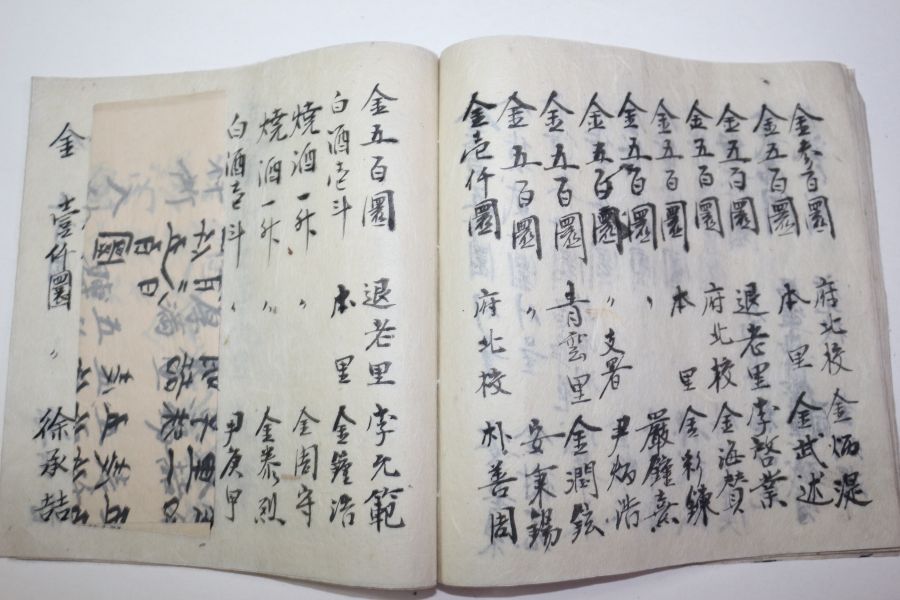 金參百圜 府北校 金炳湜
金五百圜 本里 金武述
金五百圜 退老里 李啓業
金五百圜 府北校 金海贊
金五百圜 本里 金彩鍊
金五百圜 〃 嚴鍾熹
金五百圜 〃 支署 尹炳浩
金五百圜 青雲里 金潤鉉
金五百圜 〃 安秉錫
金壱仟圜 府北校 朴善周
金五百圜 退老里 李元範
白酒壱斗 本里 金鐘浩
燒酒一升 〃 金周守
燒酒一升 〃 金泰烈
白酒壱斗 〃 尹庚甲
金壹仟圜 〃 徐承喆